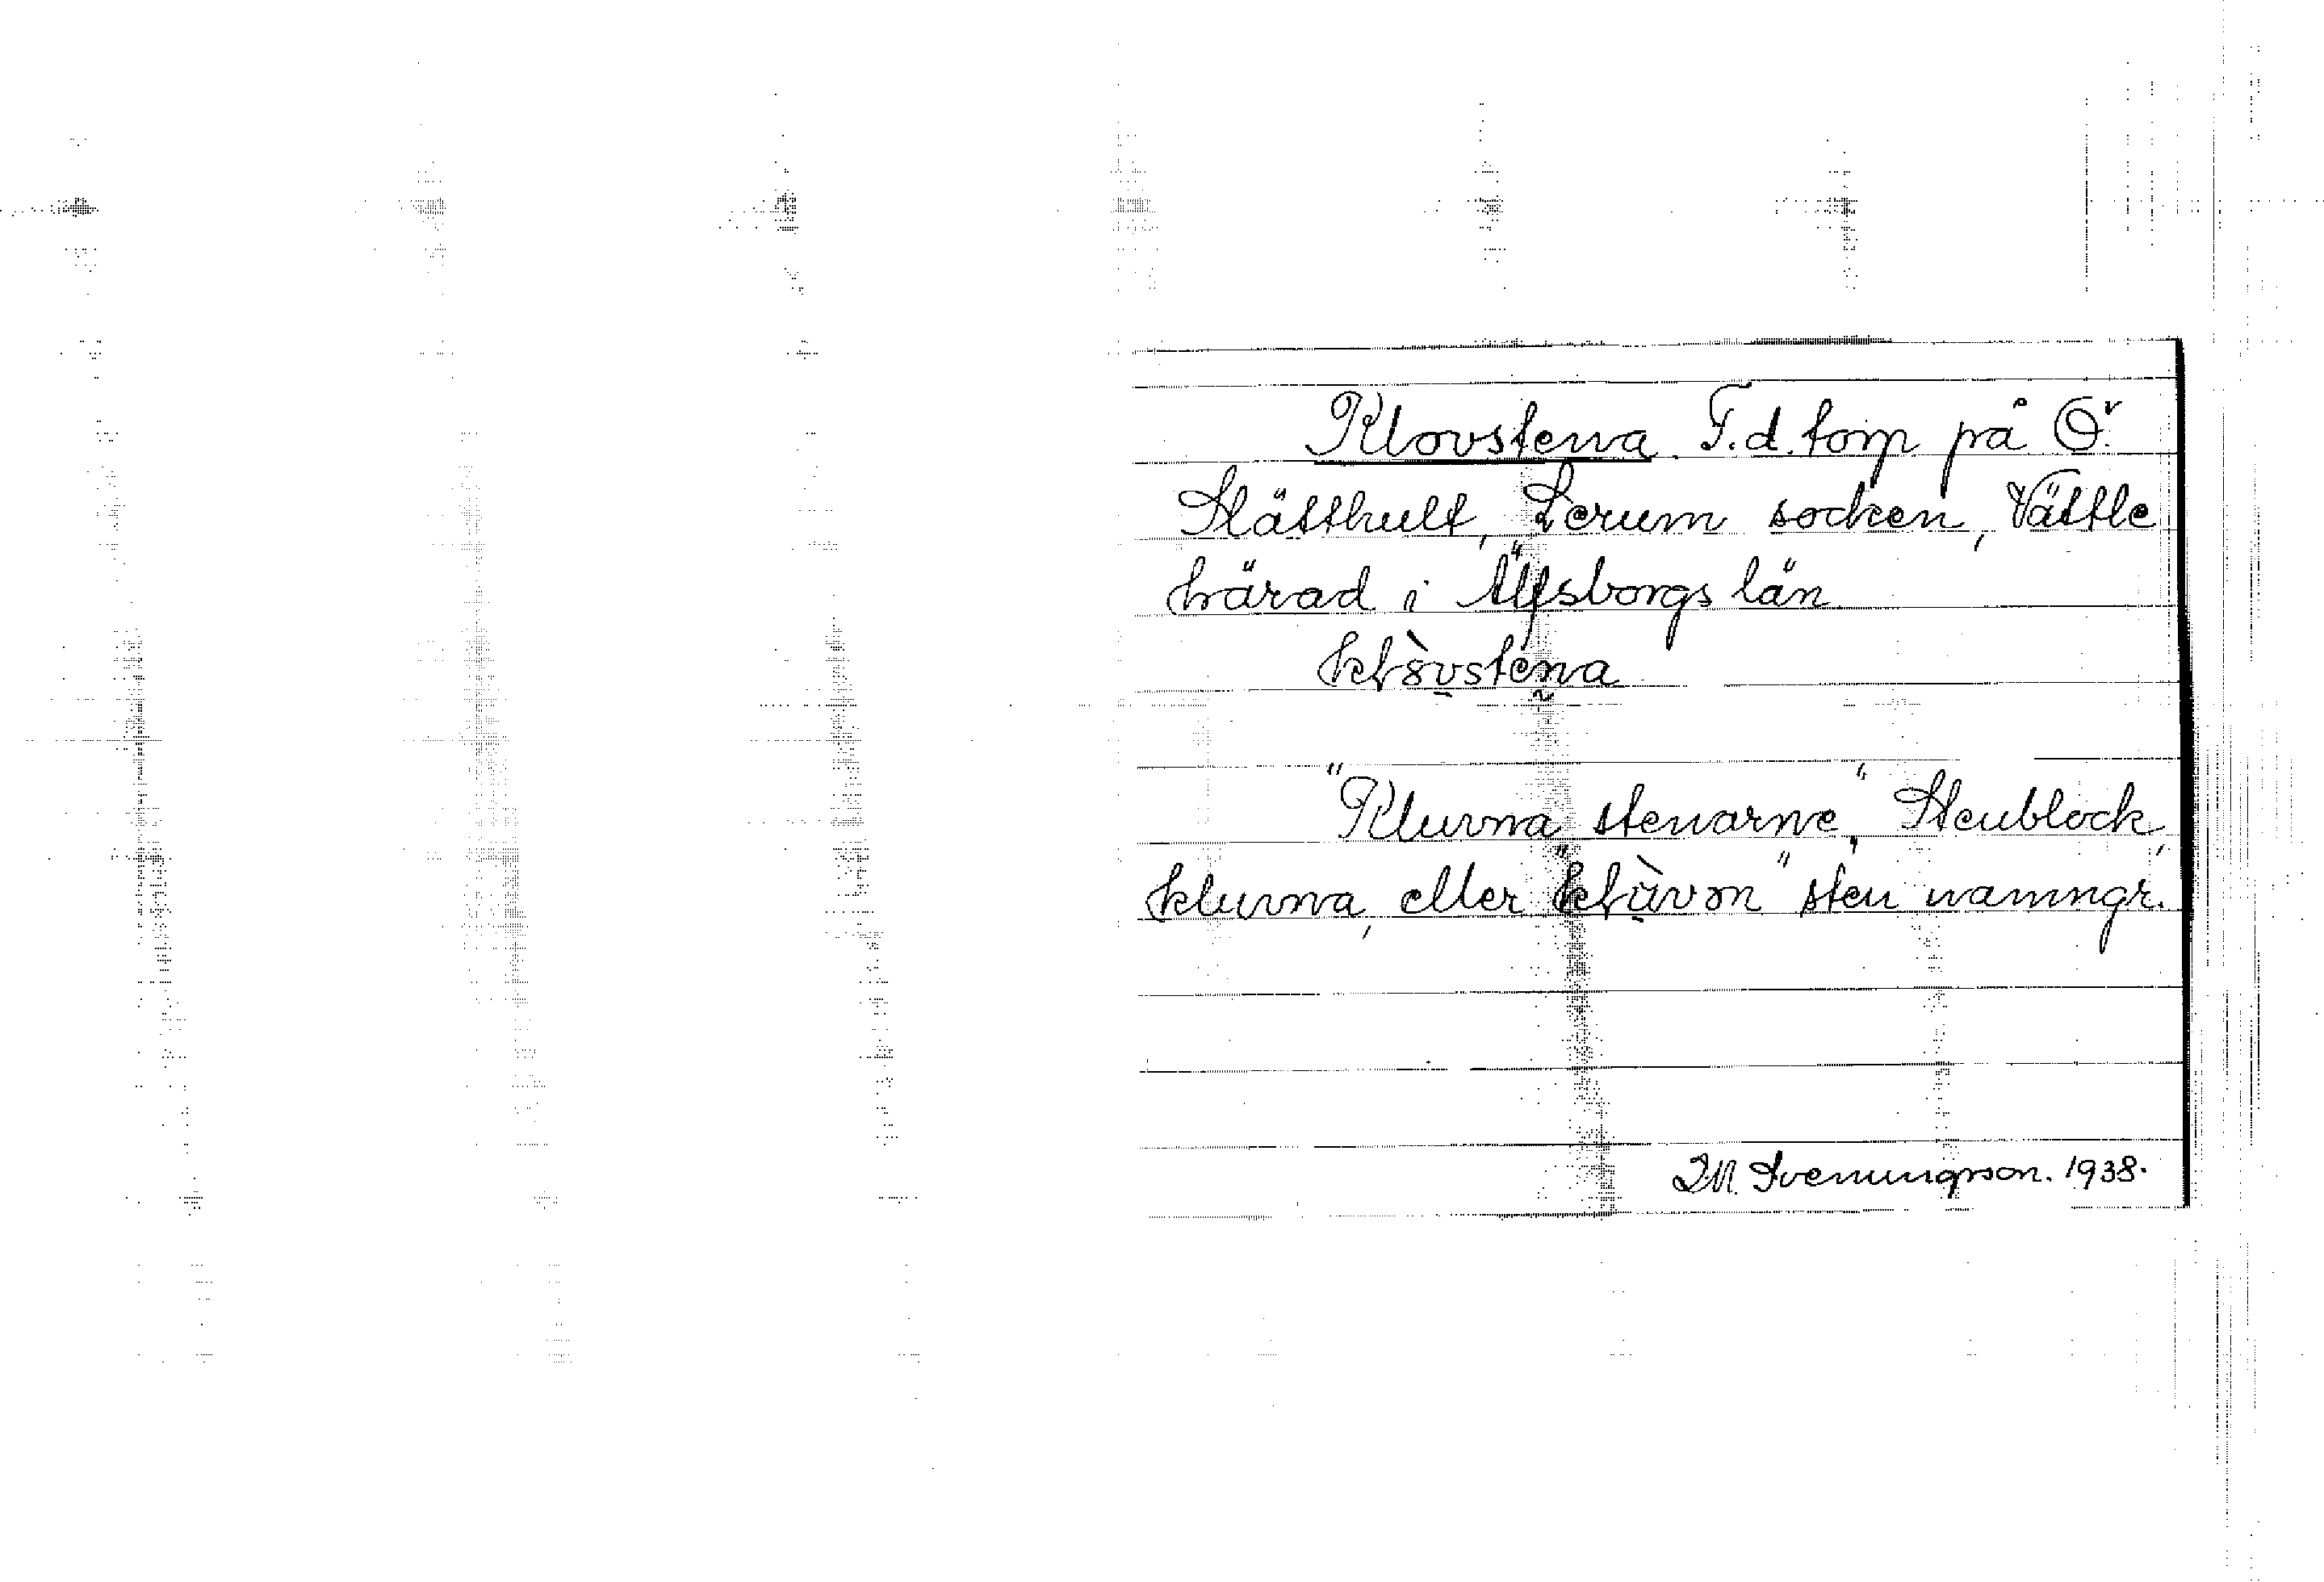 Klovstena. F.d. torp på Ö.
Slätthult, Lerum socken, Vättle
härad i Älfsborgs län.
"Kluvna stenarne". Stenblock,
kluvna, eller " " sten namngr.
Svenungson. 1938.